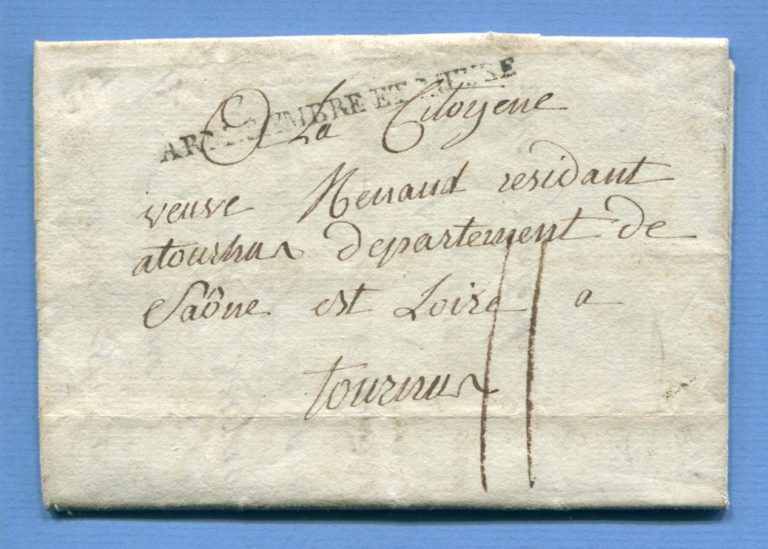 ARM. SAMBRE ET MEUSE
A La Citoyene
veuve Renaud residant
atournus departement de
Saône est Loire a
tournus
11